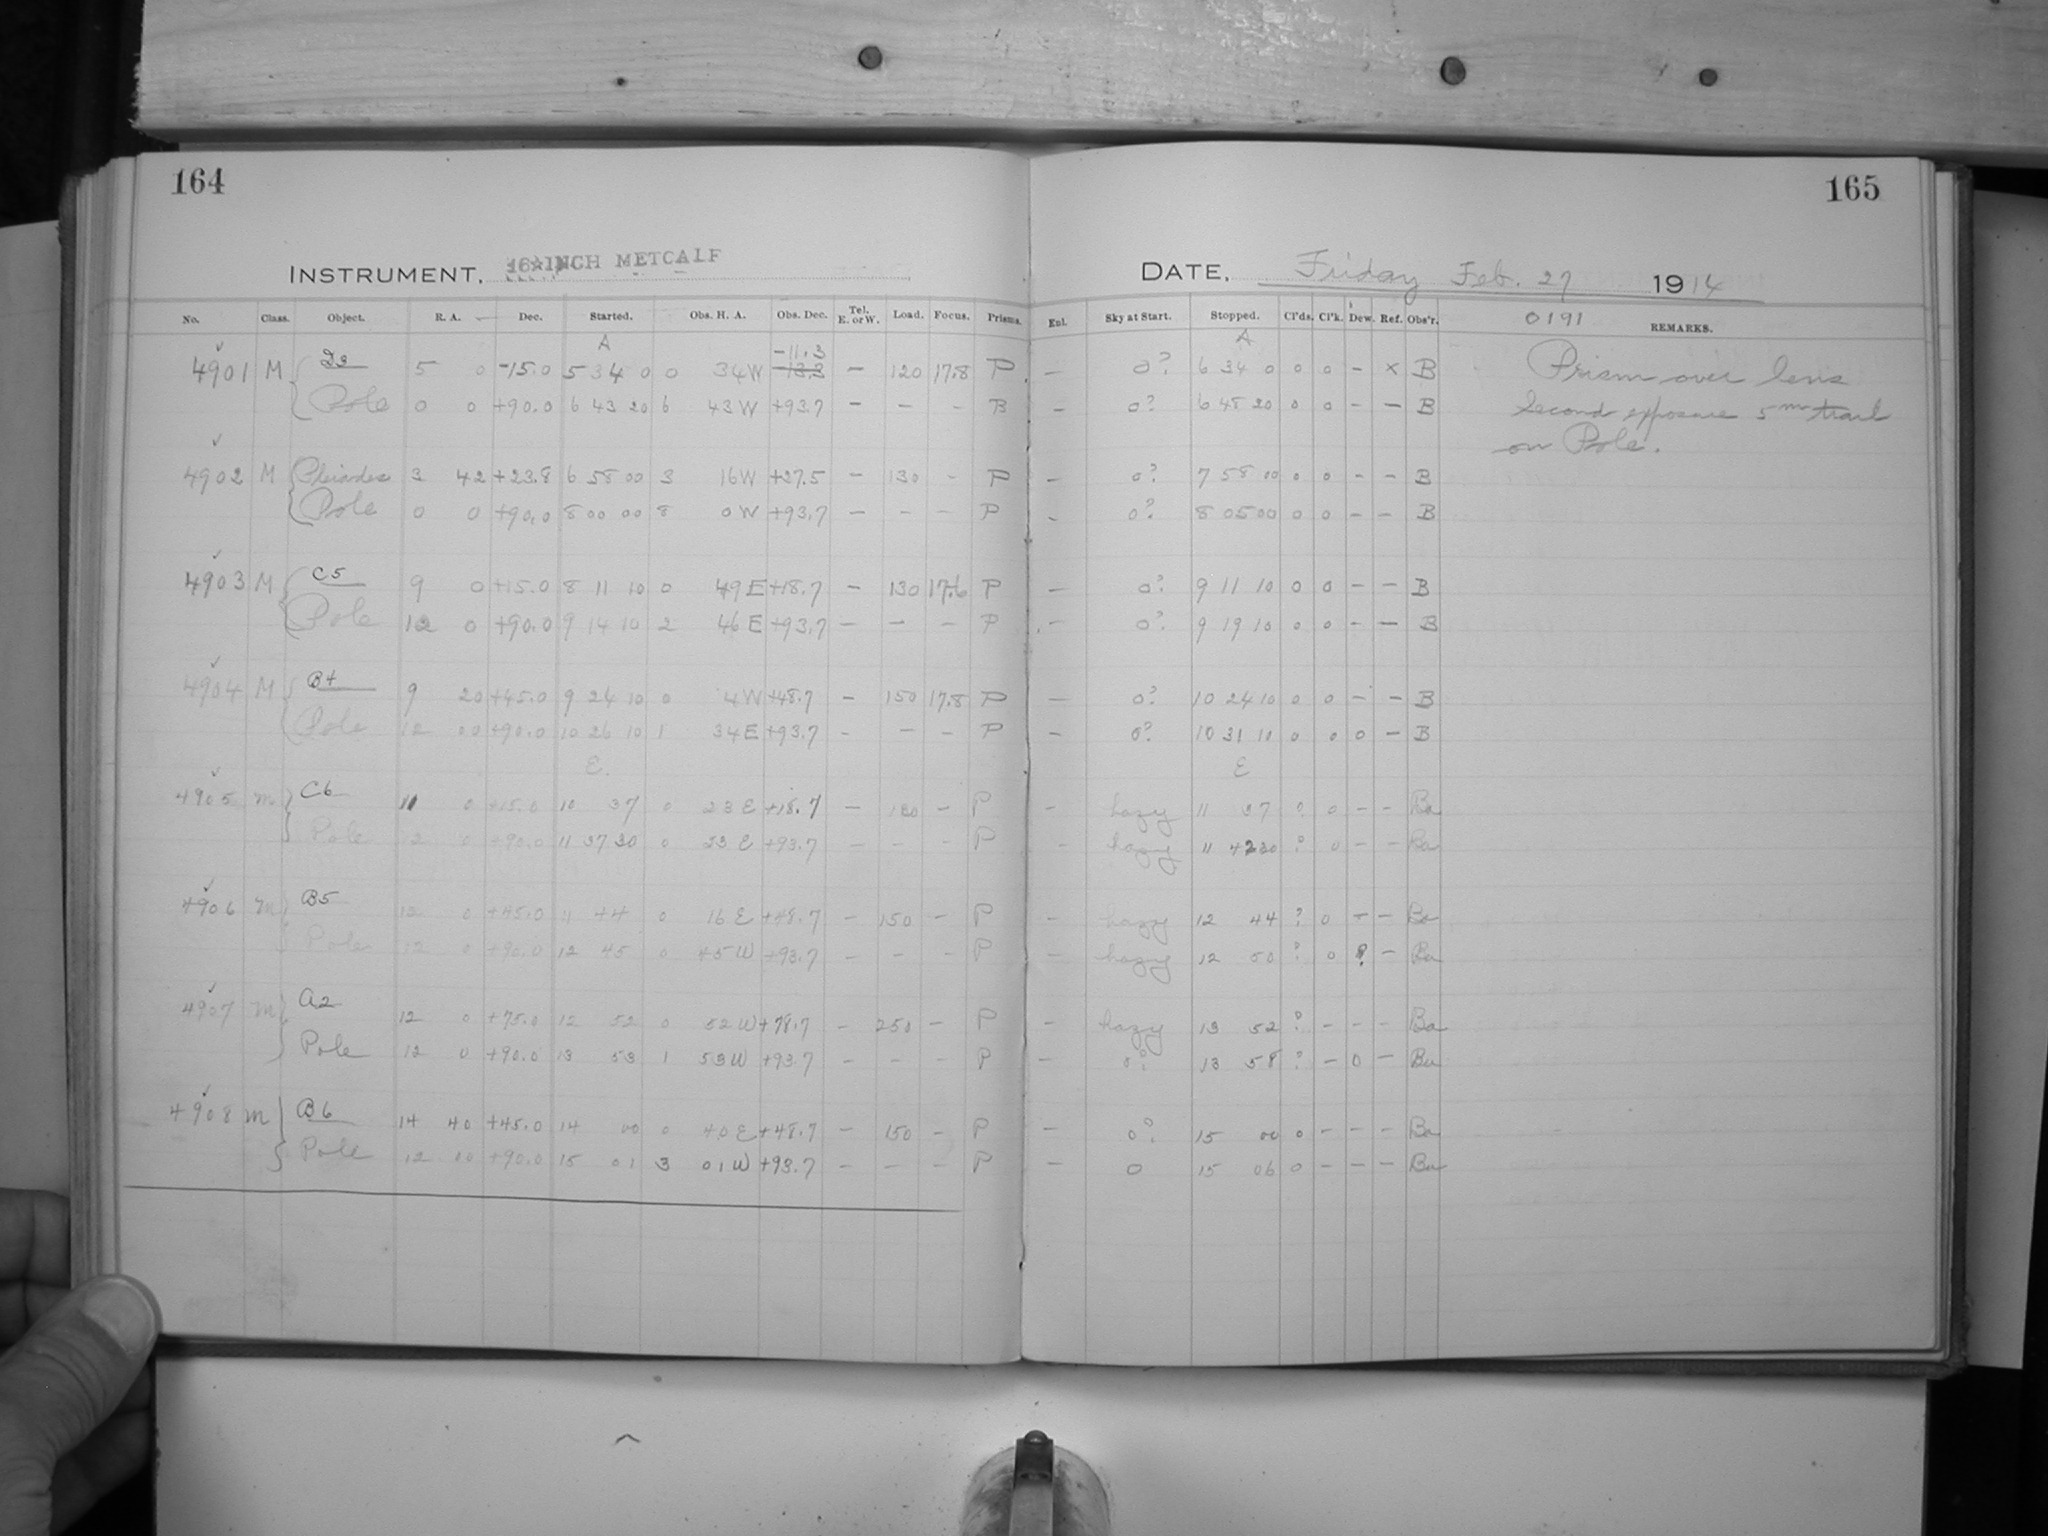 164
165
INSTRUMENT, 16 INCH METCALF
DATE, Friday Feb. 27 1914
No. Class. Object. R. A. Dec. Started. Obs. H. A. Obs. Dec. Tel. E. or W. Load. Focus. Prisms. Enl. Sky at Start. Stopped. Cl'ds. Cl'k. Dew. Ref. Obs'r. 0191 REMARKS.
A -11.3 A
4901 M D3 5 0 -15.0 5 34 0 0 34 W -13.3 - 120 17.8 P - 0? 6 34 0 0 0 - x B Prism over lens
Pole 0 0 +90.0 6 43 20 6 43 W +93.7 - - - B - 0? 6 48 20 0 0 - - B Second exposure 5m trail
on Pole.
4902 M Pleiades 3 42 +23.8 6 58 00 3 16 W +27.5 - 130 - P - 0? 7 58 00 0 0 - - B
Pole 0 0 +90.0 8 00 00 8 0 W +93.7 - - - P - 0? 8 05 00 0 0 - - B
4903 M C5 9 0 +15.0 8 11 10 0 49 E +18.7 - 130 17.6 P - 0? 9 11 10 0 0 - - B
Pole 12 0 +90.0 9 14 10 2 46 E +93.7 - - - P - 0? 9 19 10 0 0 - - B
4904 M B4 9 20 +45.0 9 24 10 0 4 W +48.7 - 150 17.8 P - 0? 10 24 10 0 0 - - B
Pole 12 00 +90.0 10 26 10 1 34 E +93.7 - - - P - 0? 10 31 10 0 0 0 - B
E. E
4905 m C6 11 0 +15.0 10 37 0 23 E +18.7 - 130 - P - hazy 11 37 ? 0 - - Ba
Pole 12 0 +90.0 11 37 30 0 23 E +93.7 - - - P - hazy 11 42 30 ? 0 - - Ba
4906 m B5 12 0 +45.0 11 44 0 16 E +48.7 - 150 - P - hazy 12 44 ? 0 - - Ba
Pole 12 0 +90.0 12 45 0 45 W +93.7 - - - P - hazy 12 50 ? 0 ? - Ba
4907 m A2 12 0 +75.0 12 52 0 52 W +78.7 - 250 - P - hazy 13 52 ? - - - Ba
Pole 12 0 +90.0 13 53 1 53 W +93.7 - - - P - 0? 13 58 ? - 0 - Ba
4908 m B6 14 40 +45.0 14 00 0 40 E +48.7 - 150 - P - 0? 15 00 0 - - - Ba
Pole 12 00 +90.0 15 01 3 01 W +93.7 - - - P - 0 15 06 0 - - - Ba